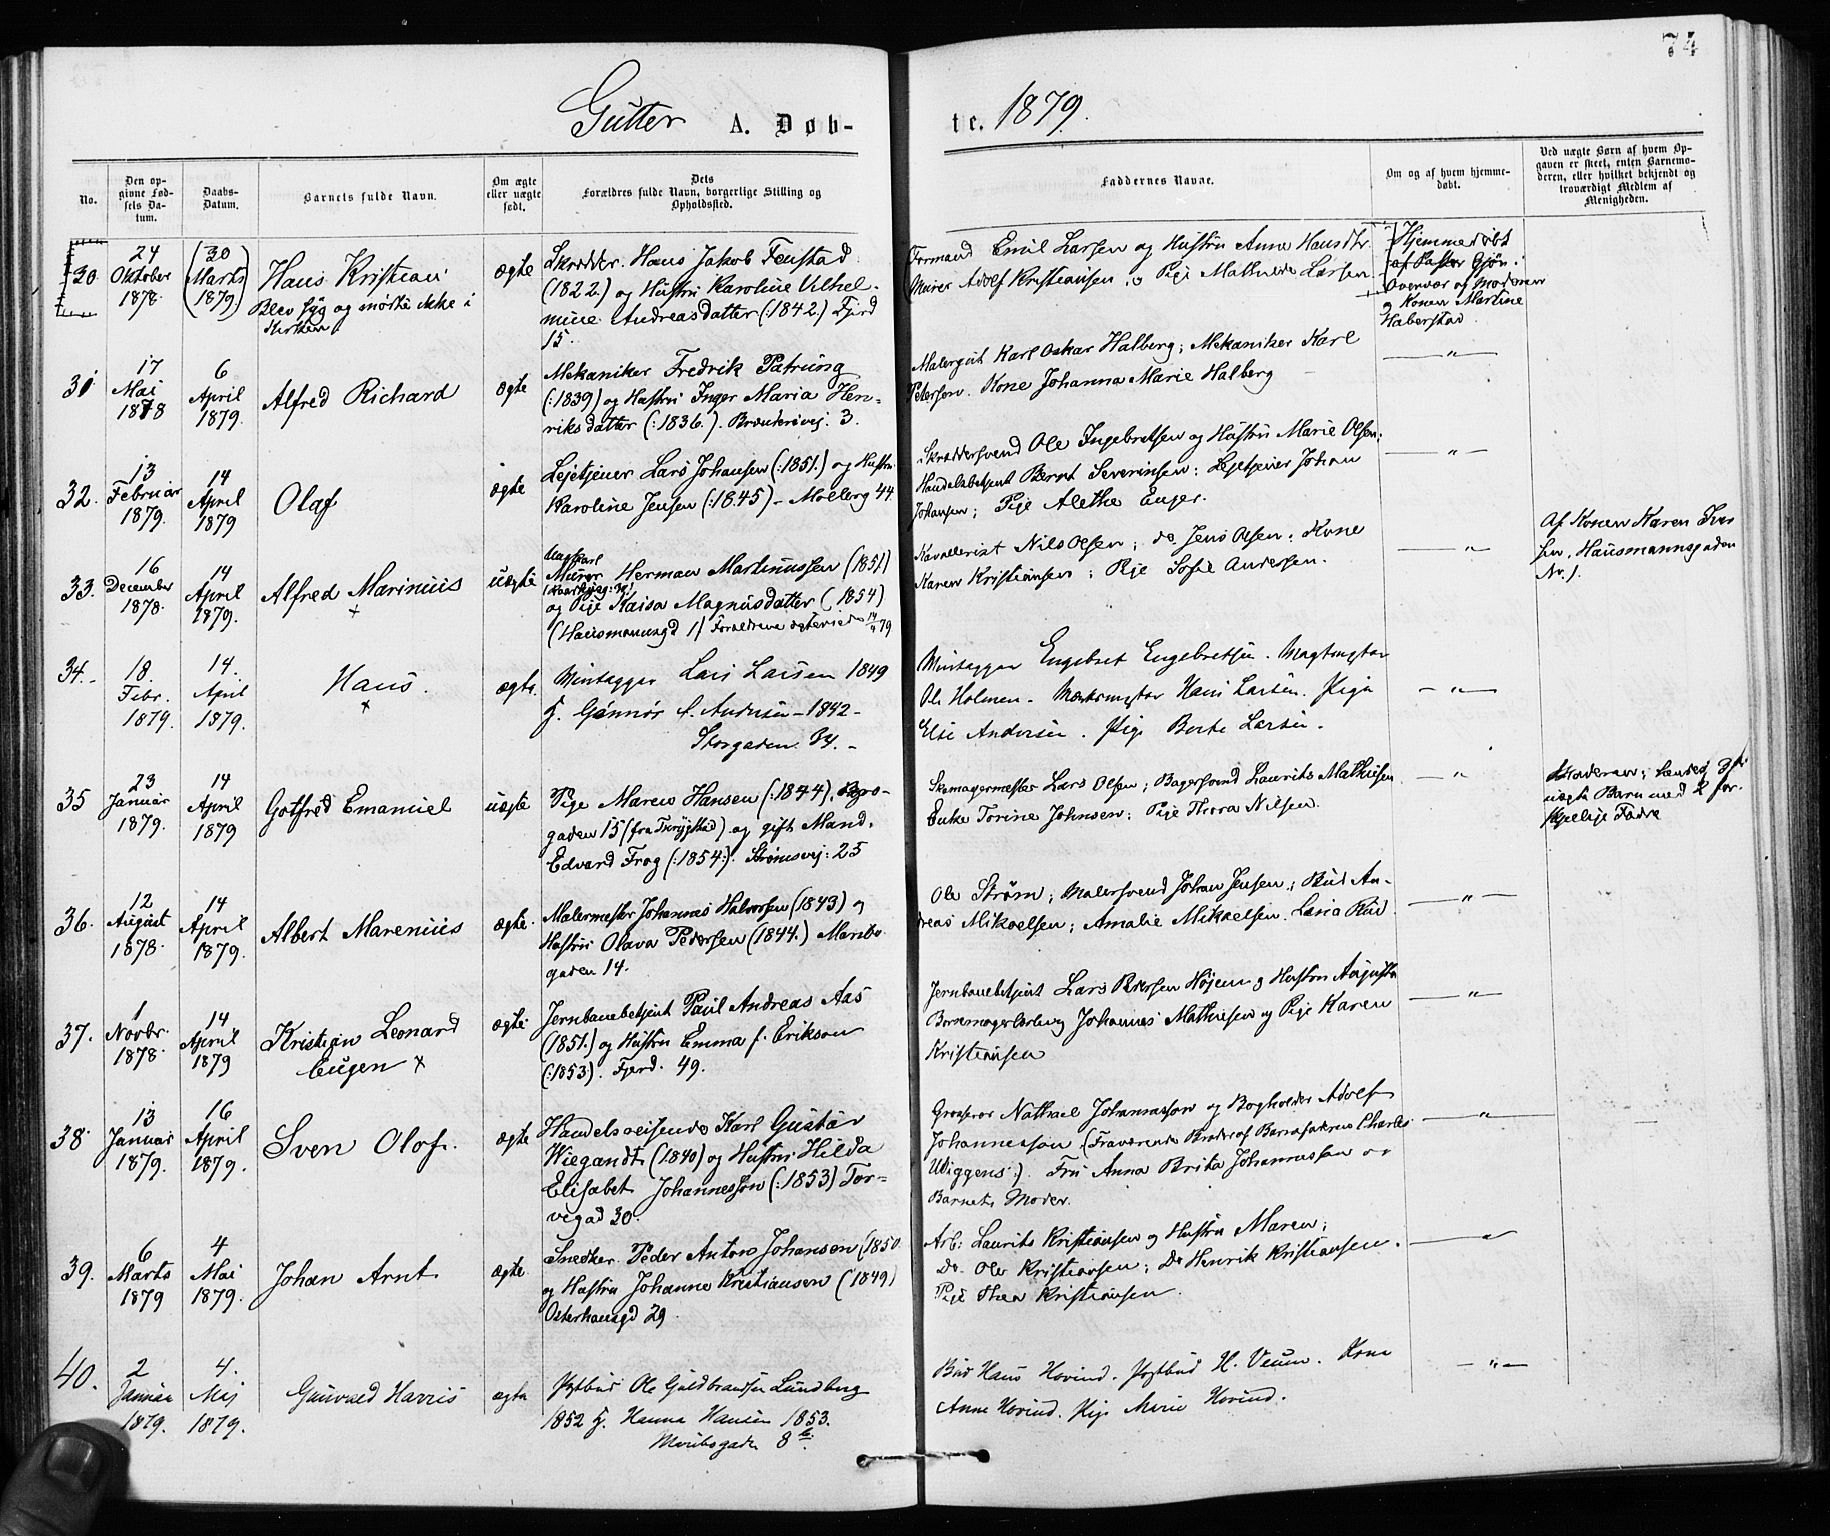 74
Gutter A. Døb-
te. 1879.
No.
Den op-
givne Fød-
sels Da-
tum.
Daabs-
Datum.
Barnets fulde Navn.
Om ægte
eller uægte
født.
Dets
Forældres fulde Navn, borgerlige Stilling og
Opholdssted.
Faddernes Navne.
Om og af hvem hjemme-
døbt.
Ved uægte Børn af hvem Op-
gaven er skeet, enten Barnemo-
deren, eller hvilket bekjendt og
troværdigt Medlem af
Menigheden.
30
24
Oktober
1878.
(30
Marts
1879)
Hans Kristian
Blev syg og mødte ikke i
Kirken
ægte
Skrædder. Hans Jakob Fenstad
(1822.) og Hustru Karoline Vilhel-
mine Andreasdatter (:1842.) Fjerd
15.
Formand Emil Larsen og Hustru Anne Hansdtr
Murer Adolf Kristiansen, o Pige Mathilde Larsen
Hjemmedøbt
af Pastor Gjør.
Overvær af Moderen
og Konen Martine
Haberstad.
31
17
Mai
1878
6
April
1879.
Alfred Richard
ægte
Mekaniker Fredrik Patrung
(:1839) og Hustru Inger Maria Hen-
riksdatter (:1836.). 3.
Malersvt Karl Oskar Halberg; Mekaniker Karl
Petersen. Kone Johanna Marie Halberg
— " —
32.
13
Februar
1879.
14
April
1879
Olaf
ægte
Lejetjener Lars Johansen (:1851.) og Hustru
Karoline Jensen (:1845) - Møllerg 44.
Skræddersvend Ole Ingebretsen og Hustru Marie Olsen;
Handelsbetjent Bernt Severinsen; Lejetjener Johan
Johansen; Pige Alethe Enger.
— " —
33.
16
December
1878.
14
April
1879.
Alfred Marinius
+
uægte
Ungkarl
Murer Herman Martinussen (1851)
og Pige Kaisa Magnusdatter (1854)
(Hausmannsgd 1) Forældrene ægteviede 14/4 79
Kavallerist Nils Olsen; do Jens Olsen; Kone
Karen Kristiansen; Pige Sofie Andersen.
— " —
Af Konen Karen Iver
sen. Hausmannsgaden
Nr. 1.
34.-
18.
Febr.
1879.
14.
April
1879.
Hans.
+
ægte.
Vintapper Lars Larsen 1849
H. Gunnor f. Andersen - 1842 -
Storgaden. 34. -
Vintapper Engebret Engebretsen.
Ole Holmen - Hans Larsen. Pige
Else Andersen. Pige Berte Larsen.
— " —
35
23
Januar
1879.
14
April
1879
Gotfred Emanuel
uægte
Pige Maren Hansen (:1844),
gaden 15 (fra Trøgstad) og gift Mand.
Edvard Frog (:1854:). Strømsvej: 25
Skomagermester Lars Olsen; Bagersvend Laurits Mathisen
Enke Torine Johnsen; Pige Thora Nilsen.
— " —
Moderen;
uægte Barn med 2 for-
skjellige Fædre
36.
12
August
1878.
14
April
1879.
Albert Marenius
ægte.
Malermester Johannes Halvorsen (1843) og
Hustru Olava Pedersen (1844.) Maribo
gaden 14.
Ole Strøm; Malersvend Johan Jensen; Bud An-
dreas Mikaelsen; Amalie Mikaelsen.
— " —
37.
1
Novbr.
1878.
14
April
1879
Kristian Leonard
Eugen +
ægte
Jernbanebetjent Paul Andreas Aas
(1851.) og Hustru Emma f. Erikson
(:1853). Fjerd. 49.
Jernbanebetjent Lars Petersen Højem og Hustru Augusta
Børsemagerlærling Johannes Mathisen og Pige Karen
Kristiansen
— " —
38.
13
Januar
1879.
16
April
1879.
Sven Olof.
ægte
Handelsreisende Karl Gustav
Wiegandt (1840) og Hustru Hilda
Elisabet Johannesson (:1853) Tor-
vegad 30.
Grosserer Nathael Johannesson og Bogholder Adolf
Johannesson. (Fraværende Broder af Barnefaderen Charles
Wiggens). Fru Anna Brita Johannesson og
Barnets Moder.
— " —
39.
6
Marts
1879
4
Mai
1879.
Johan Arnt
ægte
Snedker Peder Anton Johansen (1850
og Hustru Johanne Kristiansen (1849)
Osterhausgd 29.
Arb: Laurits Kristiansen og Hustru Maren;
Do. Ole Kristiansen; Do Henrik Kristiansen.
Pige Thea Kristiansen.
— " —
40.
2
Januar
1879.
4.
Maj
1879.
Gunvald Harris
ægte
Postbud Ole Guldbrandsen Lundberg
1852 H. Hanna Hansen 1853.
8b.
Bud Hans Hovind. Postbud H. Veum. Kone
Anne Hovind. Pige Marie Hovind.
— " —